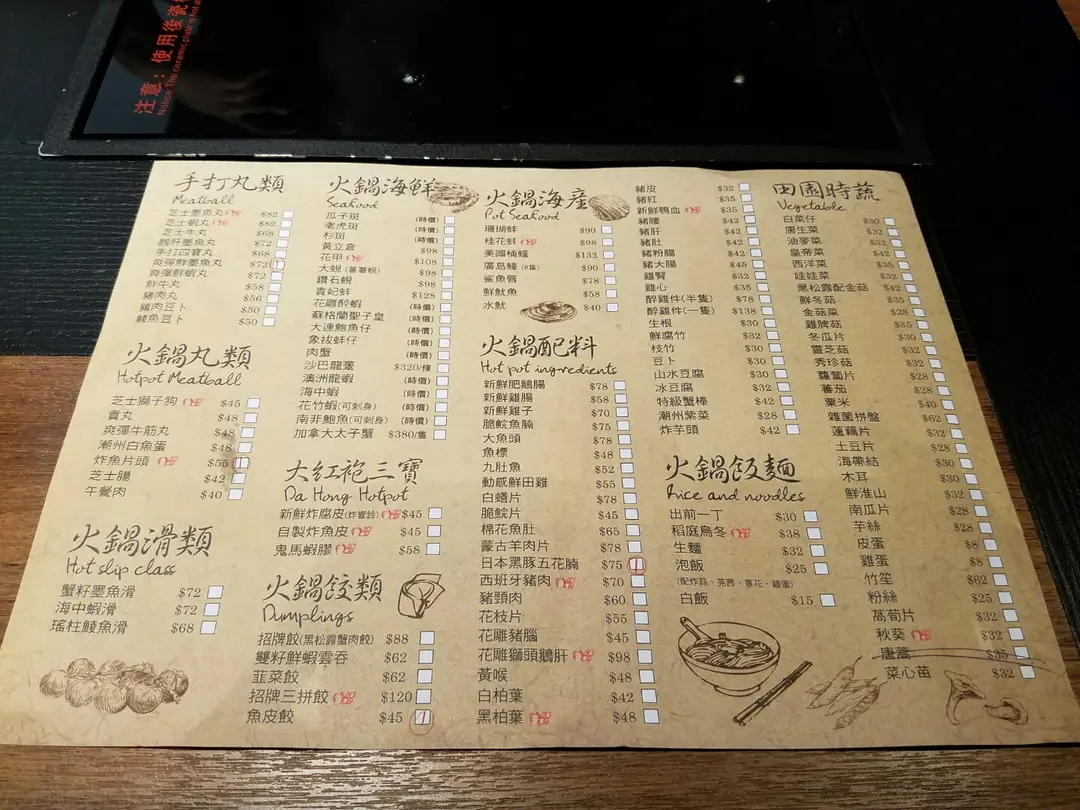 注意：使用後瓷
Notice The ceramic plate is hot a
手打丸類
Meatball
芝士墨魚丸 $82
芝士蝦丸 $82
芝士牛丸 $68
鵝肝墨魚丸 $72
手打四寶丸 $68
爽彈鮮墨魚丸 $72
爽彈鮮蝦丸 $72
鮮牛丸 $58
豬肉丸 $56
豬肉豆卜 $50
鯪魚豆卜 $50
火鍋丸類
Hotpot Meatball
芝士獅子狗 $45
貢丸 $48
爽彈牛筋丸 $48
潮州白魚蛋 $48
炸魚片頭 $55
芝士腸 $42
午餐肉 $40
火鍋滑類
Hot slip class
蟹籽墨魚滑 $72
海中蝦滑 $72
瑤柱鯪魚滑 $68
火鍋海鮮
Seafood
瓜子斑 (時價)
老虎斑 (時價)
杉斑 (時價)
黃立倉 $98
花甲 $98
大蜆 (蕃薯蜆) $108
鑽石蜆 $98
貴妃蚌 $98
花雕醉蝦 $128
蘇格蘭聖子皇 (時價)
大連鮑魚仔 (時價)
象拔蚌仔 (時價)
肉蟹 (時價)
沙巴龍躉 $320/條
澳洲龍蝦 (時價)
海中蝦 (時價)
花竹蝦(可刺身) (時價)
南非鮑魚(可刺身) (時價)
加拿大太子蟹 $380/隻
大紅袍三寶
Da Hong Hotpot
新鮮炸腐皮(炸響鈴) $45
自製炸魚皮 $45
鬼馬蝦膠 $58
火鍋餃類
Dumplings
招牌餃(黑松露蟹肉餃) $88
雙籽鮮蝦雲吞 $62
韮菜餃 $62
招牌三拼餃 $120
魚皮餃 $45
火鍋海産
Pot Seafood
珊瑚蚌 $90
桂花蚌 $98
美國桶蠔 $132
廣島蠔 (6隻) $90
鯊魚唇 $78
鮮魷魚 $58
水魷 $40
火鍋配料
Hot pot ingredients
新鮮肥鵝腸 $78
新鮮雞腸 $58
新鮮雞子 $70
脆鯇魚腩 $75
大魚頭 $78
魚標 $48
九肚魚 $52
動感鮮田雞 $55
白鱔片 $78
脆鯇片 $45
棉花魚肚 $65
蒙古羊肉片 $78
日本黑豚五花腩 $75
西班牙豬肉 $70
豬頸肉 $60
花枝片 $55
花雕豬腦 $45
花雕獅頭鵝肝 $98
黃喉 $48
白柏葉 $42
黑柏葉 $48
豬皮 $32
豬紅 $35
新鮮鴨血 $35
豬腰 $42
豬肝 $42
豬肚 $42
豬粉腸 $42
豬大腸 $45
雞腎 $32
雞心 $35
醉雞件(半隻) $78
醉雞件(一隻) $138
生根 $30
鮮腐竹 $32
枝竹 $30
豆卜 $30
山水豆腐 $30
冰豆腐 $32
特級蟹棒 $42
潮州紫菜 $28
炸芋頭 $42
火鍋飯麵
Rice and noodles
出前一丁 $30
稻庭烏冬 $38
生麵 $32
泡飯 $25
(配炸蒜、芫茜、蔥花、雞蛋)
白飯 $15
田園時蔬
Vegetable
白菜仔 $30
唐生菜 $32
油麥菜 $32
皇帝菜 $32
西洋菜 $35
娃娃菜 $32
黑松露配金菇 $42
鮮冬菇 $35
金菇菜 $28
雞脾菇 $35
冬瓜片 $30
靈芝菇 $32
秀珍菇 $32
蘿蔔片 $28
蕃茄 $28
粟米 $40
雜菌拼盤 $62
蓮藕片 $32
土豆片 $28
海帶結 $30
木耳 $30
鮮淮山 $32
南瓜片 $28
芋絲 $28
皮蛋 $8
雞蛋 $8
竹笙 $62
粉絲 $25
萵筍片 $32
秋葵 $32
唐蒿 $35
菜心苗 $32